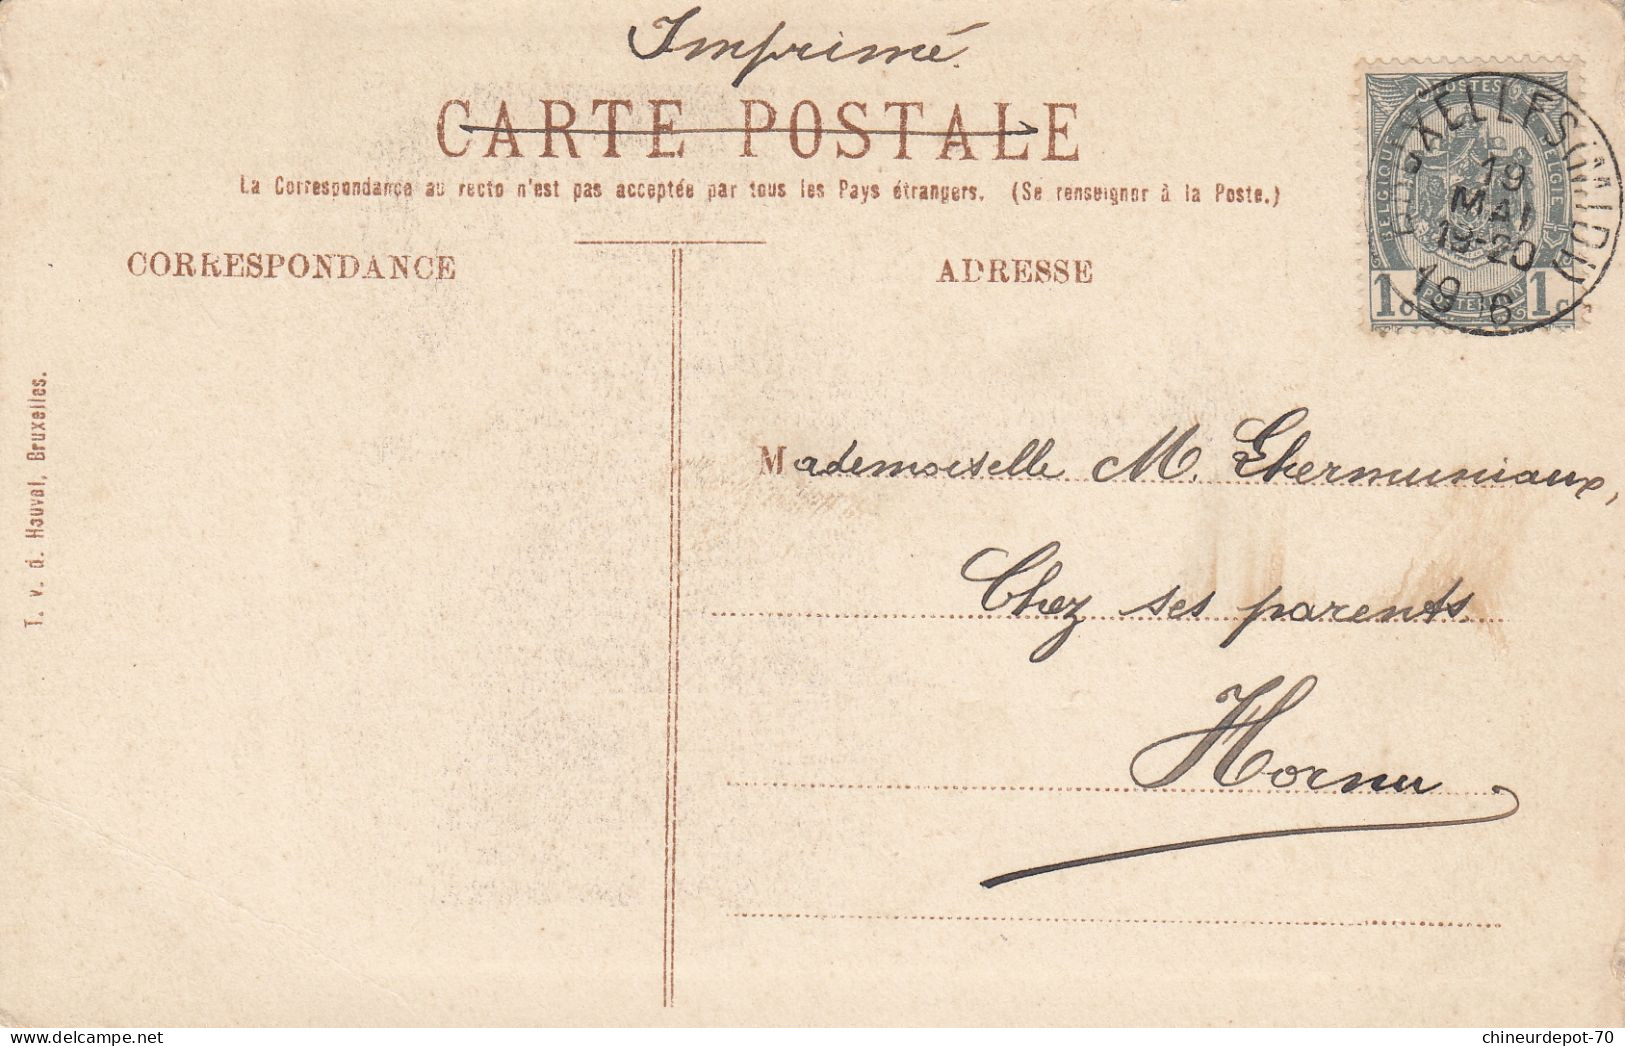 Imprimé.
CARTE POSTALE
La Correspondance au recto n'est pas acceptée par tous les Pays étrangers. (Se renseigner à la Poste.)
CORRESPONDANCE
ADRESSE
POSTES
BELGIQUE
BELGIE
POSTERIJEN
1c 1c
BRUXELLES (MIDI)
19
MAI
19-20
1906
T. v. d. Hauval, Bruxelles.
Mademoiselle M. Ghermuniaux,
Chez ses parents
Hornu
delcampe.net
chineurdepot-70